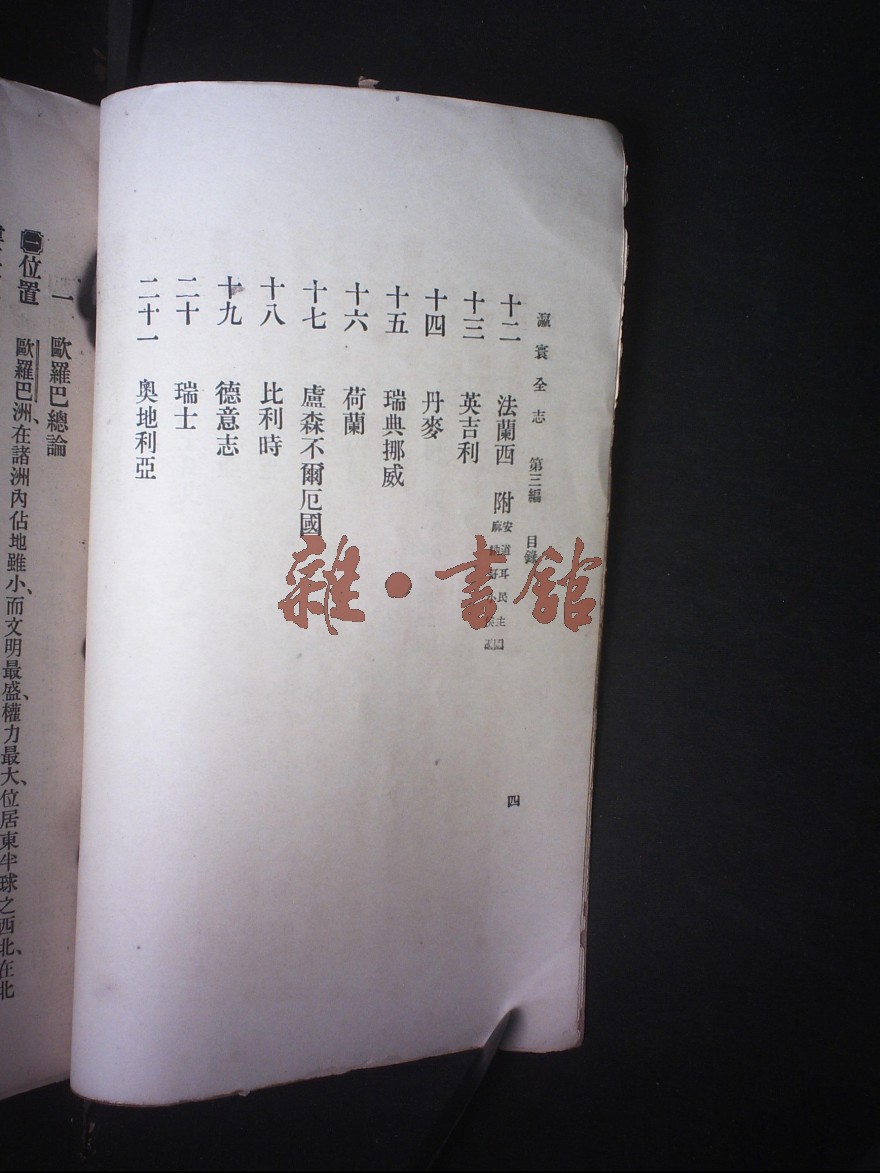 瀛寰全志 第三編 目錄 四
十二 法蘭西 附
安道耳民主
麻
十三 英吉利
十四 丹麥
十五 瑞典挪威
十六 荷蘭
十七 盧森不爾厄國
十八 比利時
十九 德意志
二十 瑞士
二十一 奧地利亞
一 歐羅巴總論
一 位置 歐羅巴洲、在諸洲內佔地雖小、而文明最盛、權力最大、位居東半球之西北、在北
雜·書館